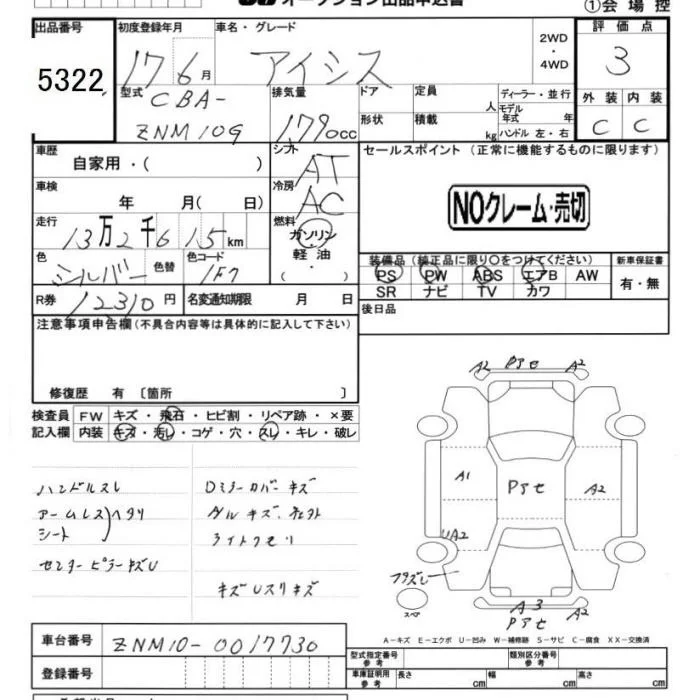 オークション出品申込書
①会場控
出品番号
5322
初度登録年月
17 6月
車名・グレード
アイシス
2WD
・
4WD
評価点
3
型式
CBA-
ZNM10G
排気量
1790cc
ドア
形状
定員
人
積載
kg
ディーラー・並行
モデル
年式 年
ハンドル 左・右
外装
内装
C
C
車歴
自家用・( )
シフト
AT
セールスポイント (正常に機能するものに限ります)
NOクレーム・売切
車検
年 月( 日)
冷房
AC
走行
13万2千615km
燃料
ガソリン・
軽油・
( )
色
シルバー
色替
色コード
1F7
装備品(純正品に限り○をつけてください)
PS PW ABS エアB AW
SR ナビ TV カワ
新車保証書
有・無
R券
12310円
名変通知期限
月 日
後日品
注意事項申告欄(不具合内容等は具体的に記入して下さい)
修復歴 有 〔箇所 〕
検査員
記入欄
FW キズ・飛石・ヒビ割・リペア跡・×要
内装 キズ・汚レ・コゲ・穴・スレ・キレ・破レ
ハンドルスレ
アームレス
シート
ヘタリ
センターピラーキズU
Dミラーカバーキズ
ライトクモリ
キズUスリキズ
A2
Pアセ
A2
A1
Pアセ
A2
UA2
スペア
A3
A2
Pアセ
A-キズ E-エクボ U-凹み W-補修跡 S-サビ C-腐食 XX-交換済
車台番号
ZNM10-0017730
登録番号
型式指定番号
参考
類別区分番号
参考
車庫証明用
参考
長さ cm
幅 cm
高さ cm